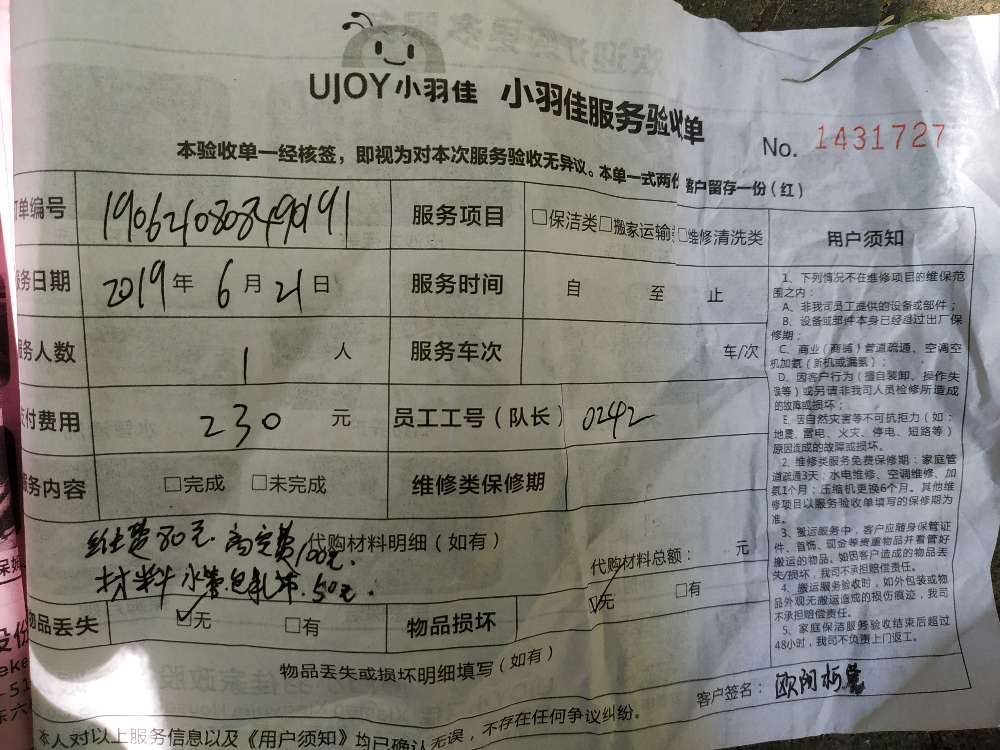 UJOY小羽佳 小羽佳服务验收单
No. 1431727
本验收单一经核签，即视为对本次服务验收无异议。本单一式两份 客户留存一份（红）
订单编号 1906210808490191 服务项目 □保洁类□搬家运输类□维修清洗类 用户须知
服务日期 2019年6月21日 服务时间 自 至 止
服务人数 1人 服务车次 车/次
支付费用 230元 员工工号（队长）0242
服务内容 □完成 □未完成 维修类保修期
代购材料明细（如有）
维修费80元. 高空费100元.
材料 水管包扎带.50元.
代购材料总额： 元
物品丢失 ☑无 □有 物品损坏 ☑无 □有
物品丢失或损坏明细填写（如有）
1、下列情况不在维修项目的维保范
围之内：
A、非我司员工提供的设备或部件；
B、设备或部件本身已经超过出厂保
修期；
C、商业（商铺）管道疏通、空调空
机加氨（新机或漏氨）；
D、因客户行为（擅自装卸、操作失
误等）或另请非我司人员检修所造成
的故障或损坏；
E、因自然灾害等不可抗拒力（如：
地震、雷电、火灾、停电、短路等）
原因造成的故障或损坏。
2、维修类服务免费保修期：家庭管
道疏通3天；水电维修、空调维修、加
氨1个月；压缩机更换6个月。其他维
修项目以服务验收单填写的保修期为
准。
3、搬运服务中，客户应随身保管证
件、首饰、现金等贵重物品并看管好
搬运的物品。如因客户造成的物品丢
失/损坏，我司不承担赔偿责任。
4、搬运服务验收时，如外包装或物
品外观无搬运造成的损伤痕迹，我司
不承担赔偿责任。
5、家庭保洁服务验收结束后超过
48小时，我司不负责上门返工。
客户签名：
本人对以上服务信息以及《用户须知》均已确认无误，不存在任何争议纠纷。